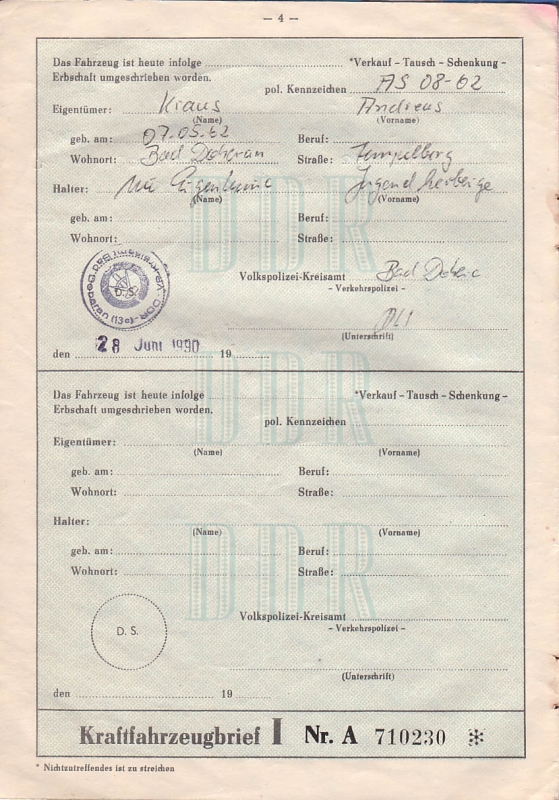 – 4 –
Das Fahrzeug ist heute infolge *Verkauf – Tausch – Schenkung –
Erbschaft umgeschrieben worden.
pol. Kennzeichen AS 08-62
Eigentümer: Kraus Andreas
(Name) (Vorname)
geb. am: 07.05.62 Beruf:
Wohnort: Bad Doberan Straße: Tempelberg
Halter: Jugendherberge
(Name) (Vorname)
geb. am: Beruf:
Wohnort: Straße:
Volkspolizei-Kreisamt Bad Doberan
– Verkehrspolizei –
D. S.
(Unterschrift)
28 Juni 1990
den 19
DDR
Das Fahrzeug ist heute infolge *Verkauf – Tausch – Schenkung –
Erbschaft umgeschrieben worden.
pol. Kennzeichen
DDR
Eigentümer:
(Name) (Vorname)
geb. am: Beruf:
Wohnort: Straße:
Halter:
(Name) (Vorname)
DDR
geb. am: Beruf:
Wohnort: Straße:
D. S.
Volkspolizei-Kreisamt
– Verkehrspolizei –
(Unterschrift)
den 19
Kraftfahrzeugbrief I Nr. A 710230 *
* Nichtzutreffendes ist zu streichen